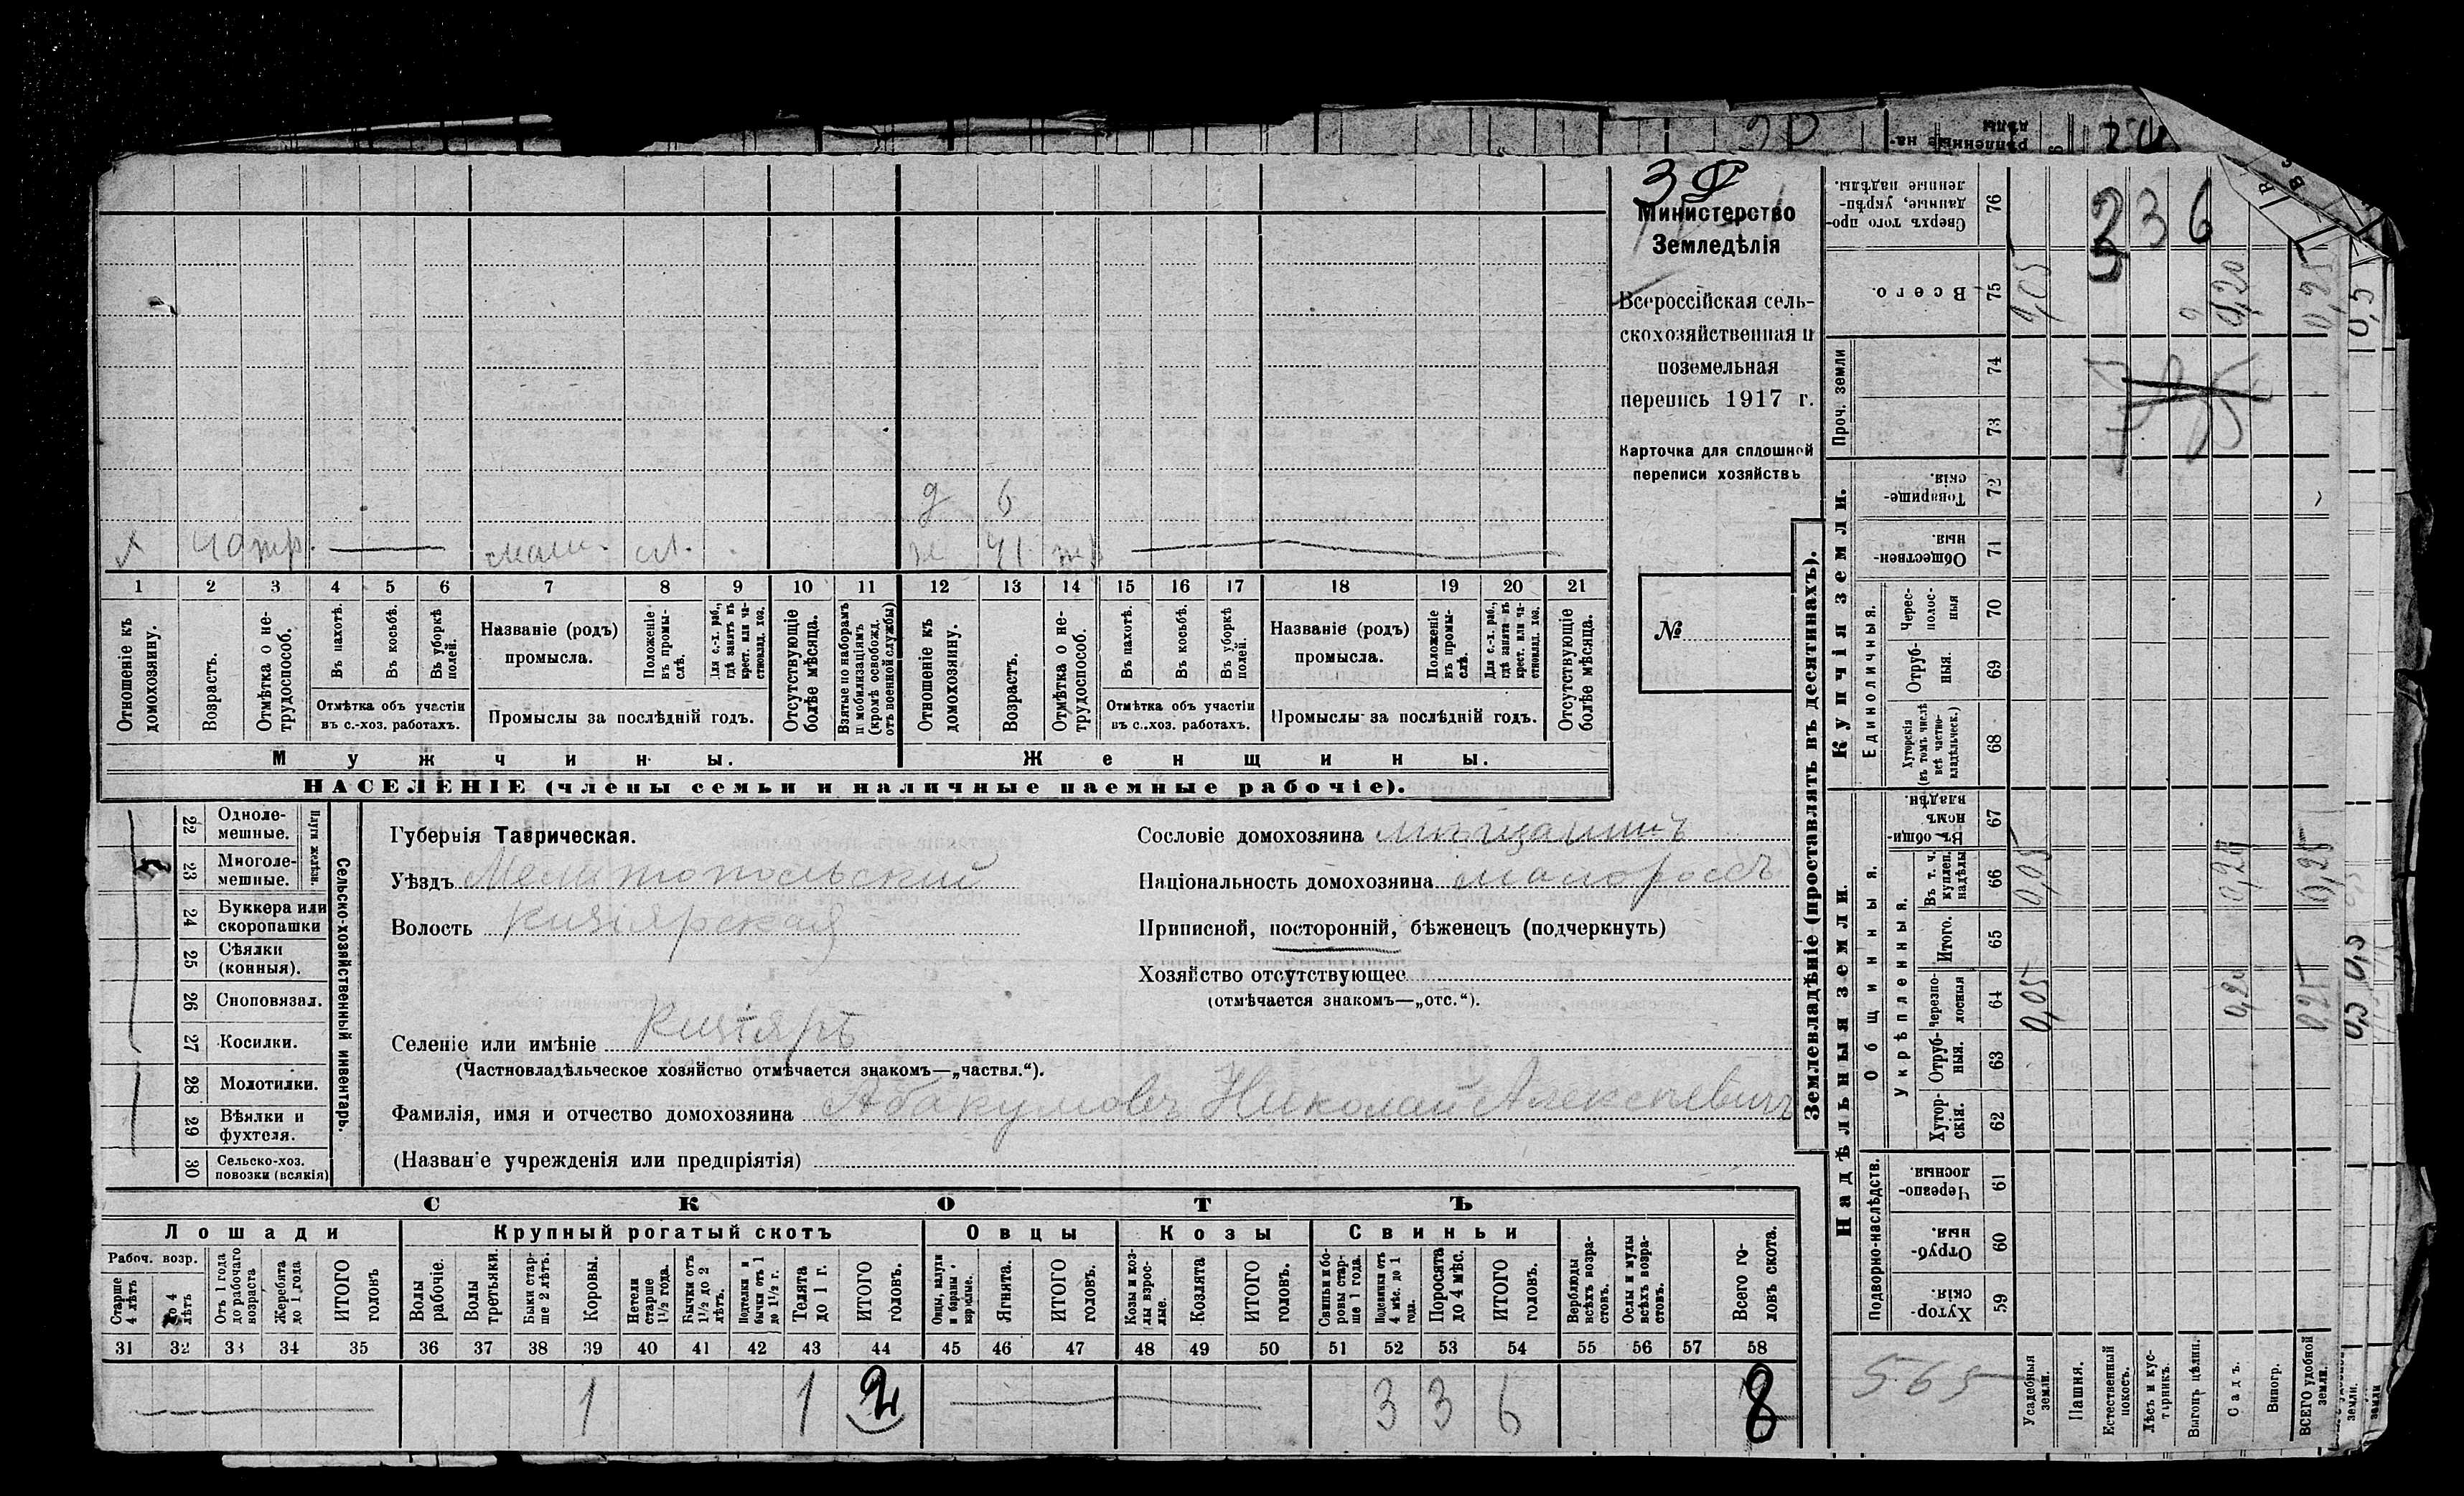 336
Министерство
Земледѣлія
Всероссійская сель-
скохозяйственная и
поземельная
перепись 1917 г.
Карточка для сплошной
переписи хозяйствъ
№
д 6
х 40 тр. маш. ж 41
1 2 3 4 5 6 7 8 9 10 11 12 13 14 15 16 17 18 19 20 21
Отношеніе къ домохозяину.
Возрастъ.
Отмѣтка о не-трудоспособ.
Въ пахотѣ.
Въ косьбѣ.
Въ уборкѣ полей.
Отмѣтка объ участіи
въ с.-хоз. работахъ.
Названіе (родъ)
промысла.
Положеніе въ промы-слѣ.
Для с.-х. раб., гдѣ занятъ въ крест. или ча-стновлад. хоз.
Промыслы за послѣдній годъ.
Отсутствующіе болѣе мѣсяца.
Взятые по наборамъ и мобилизаціямъ (кромѣ освобожд. отъ военной службы)
Отношеніе къ домохозяину.
Возрастъ.
Отмѣтка о не-трудоспособ.
Въ пахотѣ.
Въ косьбѣ.
Въ уборкѣ полей.
Отмѣтка объ участіи
въ с.-хоз. работахъ.
Названіе (родъ)
промысла.
Положеніе въ промы-слѣ.
Для с.-х. раб., гдѣ занята въ крест. или ча-стновлад. хоз.
Промыслы за послѣдній годъ.
Отсутствующіе болѣе мѣсяца.
Мужчины. Женщины.
НАСЕЛЕНІЕ (члены семьи и наличные наемные рабочіе).
22 Одноле-мешные.
23 Многоле-мешные.
Плуги желѣзн.
24 Буккера или скоропашки
25 Сѣялки (конныя).
26 Сноповязал.
27 Косилки.
28 Молотилки.
29 Вѣялки и фухтеля.
30 Сельско-хоз. повозки (всякія)
Сельско-хозяйственный инвентарь.
Губернія Таврическая.
Уѣздъ Мелитопольский
Волость Кизіярская
Селеніе или имѣніе Кизіяръ
(Частновладѣльческое хозяйство отмѣчается знакомъ—„частвл.“).
Фамилія, имя и отчество домохозяина Абакумовъ Николай Алексѣевичъ
(Названіе учрежденія или предпріятія)
Сословіе домохозяина мѣщанинъ
Національность домохозяина малороссъ
Приписной, посторонній, бѣженецъ (подчеркнуть)
Хозяйство отсутствующее
(отмѣчается знакомъ—„отс.“).
СКОТЪ
Лошади Крупный рогатый скотъ Овцы Козы Свиньи
Рабоч. возр.
Старше 4 лѣтъ
До 4 лѣтъ
Отъ 1 года до рабочаго возраста
Жеребята до 1 года
ИТОГО головъ
Волы рабочіе.
Волы третьяки.
Быки стар-ше 2 лѣтъ.
Коровы.
Нетели старше 1½ года.
Бычки отъ 1½ до 2 лѣтъ.
Подтелки и бычки отъ 1 до 1½ г.
Телята до 1 г.
ИТОГО головъ.
Овцы, валухи и бараны взрослые.
Ягнята.
ИТОГО головъ.
Козы и коз-лы взрос-лые.
Козлята
ИТОГО головъ.
Свиньи и бо-ровы стар-ше 1 года.
Подсвинки отъ 4 мѣс. до 1 года.
Поросята до 4 мѣс.
ИТОГО головъ.
Верблюды всѣхъ возра-стовъ.
Ослы и мулы всѣхъ возра-стовъ.
Всего го-ловъ скота.
31 32 33 34 35 36 37 38 39 40 41 42 43 44 45 46 47 48 49 50 51 52 53 54 55 56 57 58
1 1 2 3 3 6 8
Землевладѣніе (проставлять въ десятинахъ).
Сверхъ того про-данные, укрѣп-ленные надѣлы. 76
Всего. 75
Проч. земли 74 73
Купчія земли.
Товарище-скія 72
Обществен-ныя 71
Единоличныя.
Черес-полос-ныя 70
Отруб-ныя. 69
Хуторскія (въ томъ числѣ всѣ частно-владѣльческ.) 68
Надѣльныя земли.
Общинныя.
Въ общин-номъ владѣн. 67
Укрѣпленныя.
Въ т. ч. куплен. надѣлы 66
Итого. 65
Черезпо-лосная 64
Отруб-ныя. 63
Хутор-скія. 62
Подворно-наслѣдств.
Черезпо-лосныя. 61
Отруб-ныя. 60
Хутор-скія. 59
Усадебныя земли.
Пашня.
Естественный покосъ.
Лѣсъ и кус-тарникъ.
Выгонъ цѣлин.
Садъ.
Виногр.
ВСЕГО удобной земли.
565
0,05 0,20 0,25
0,05 0,25
0,05 0,20 0,25
0,5
0,5 0,5